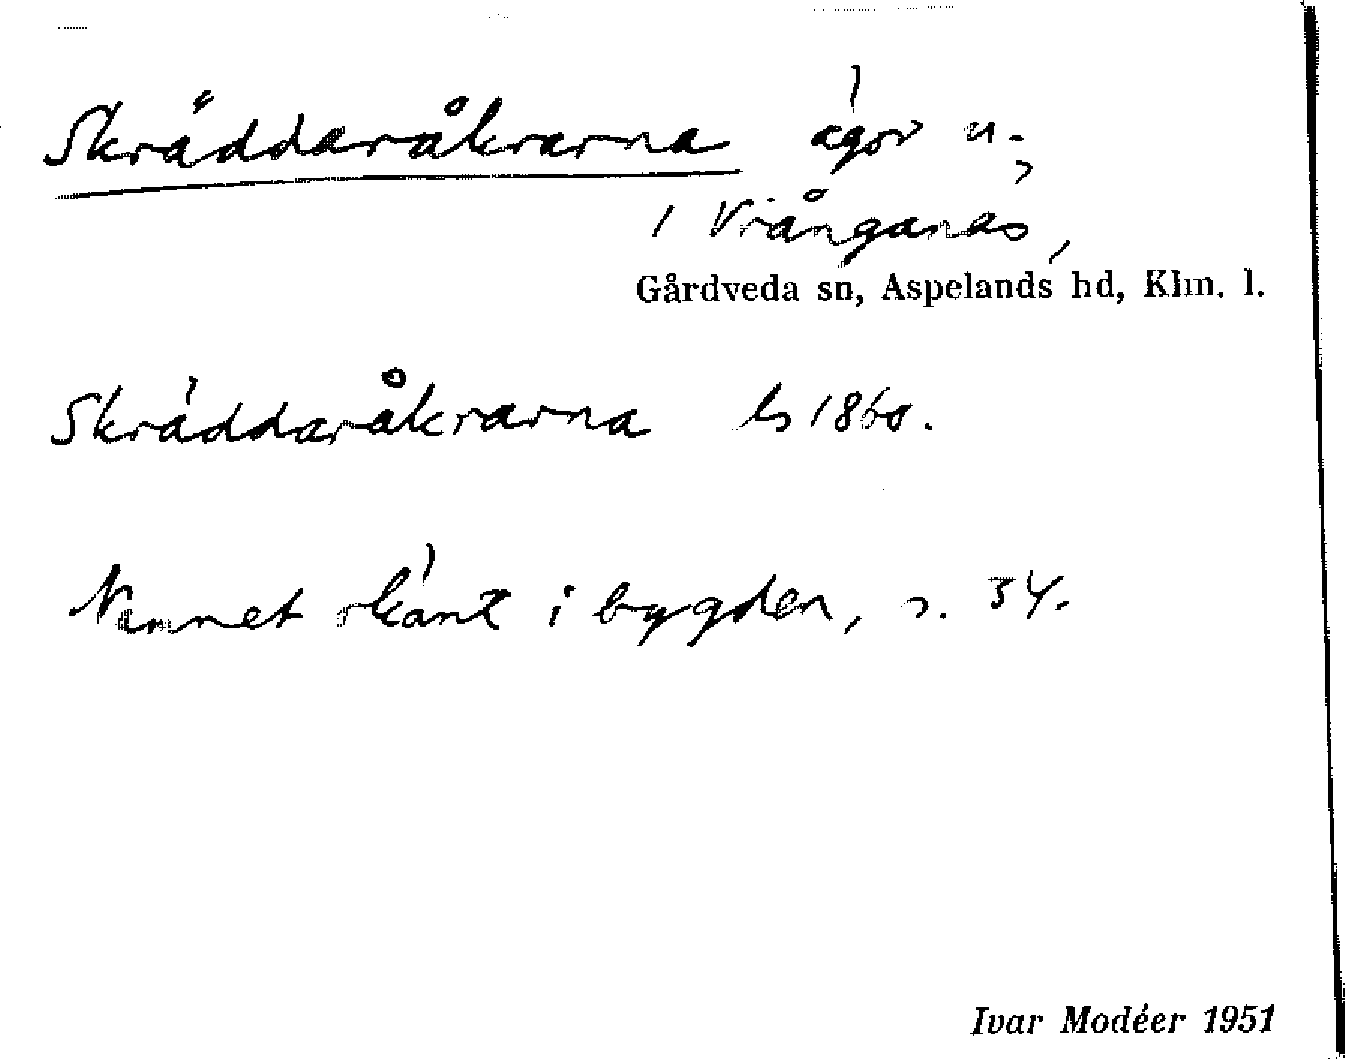 Skräddaråkrarna ägor u.,
i Vrånganäs,
Gårdveda sn, Aspelands hd, Klm. l.
Skräddaråkrarna ls 1860.
Namnet okänt i bygden, s. 34.
Ivar Modéer 1951